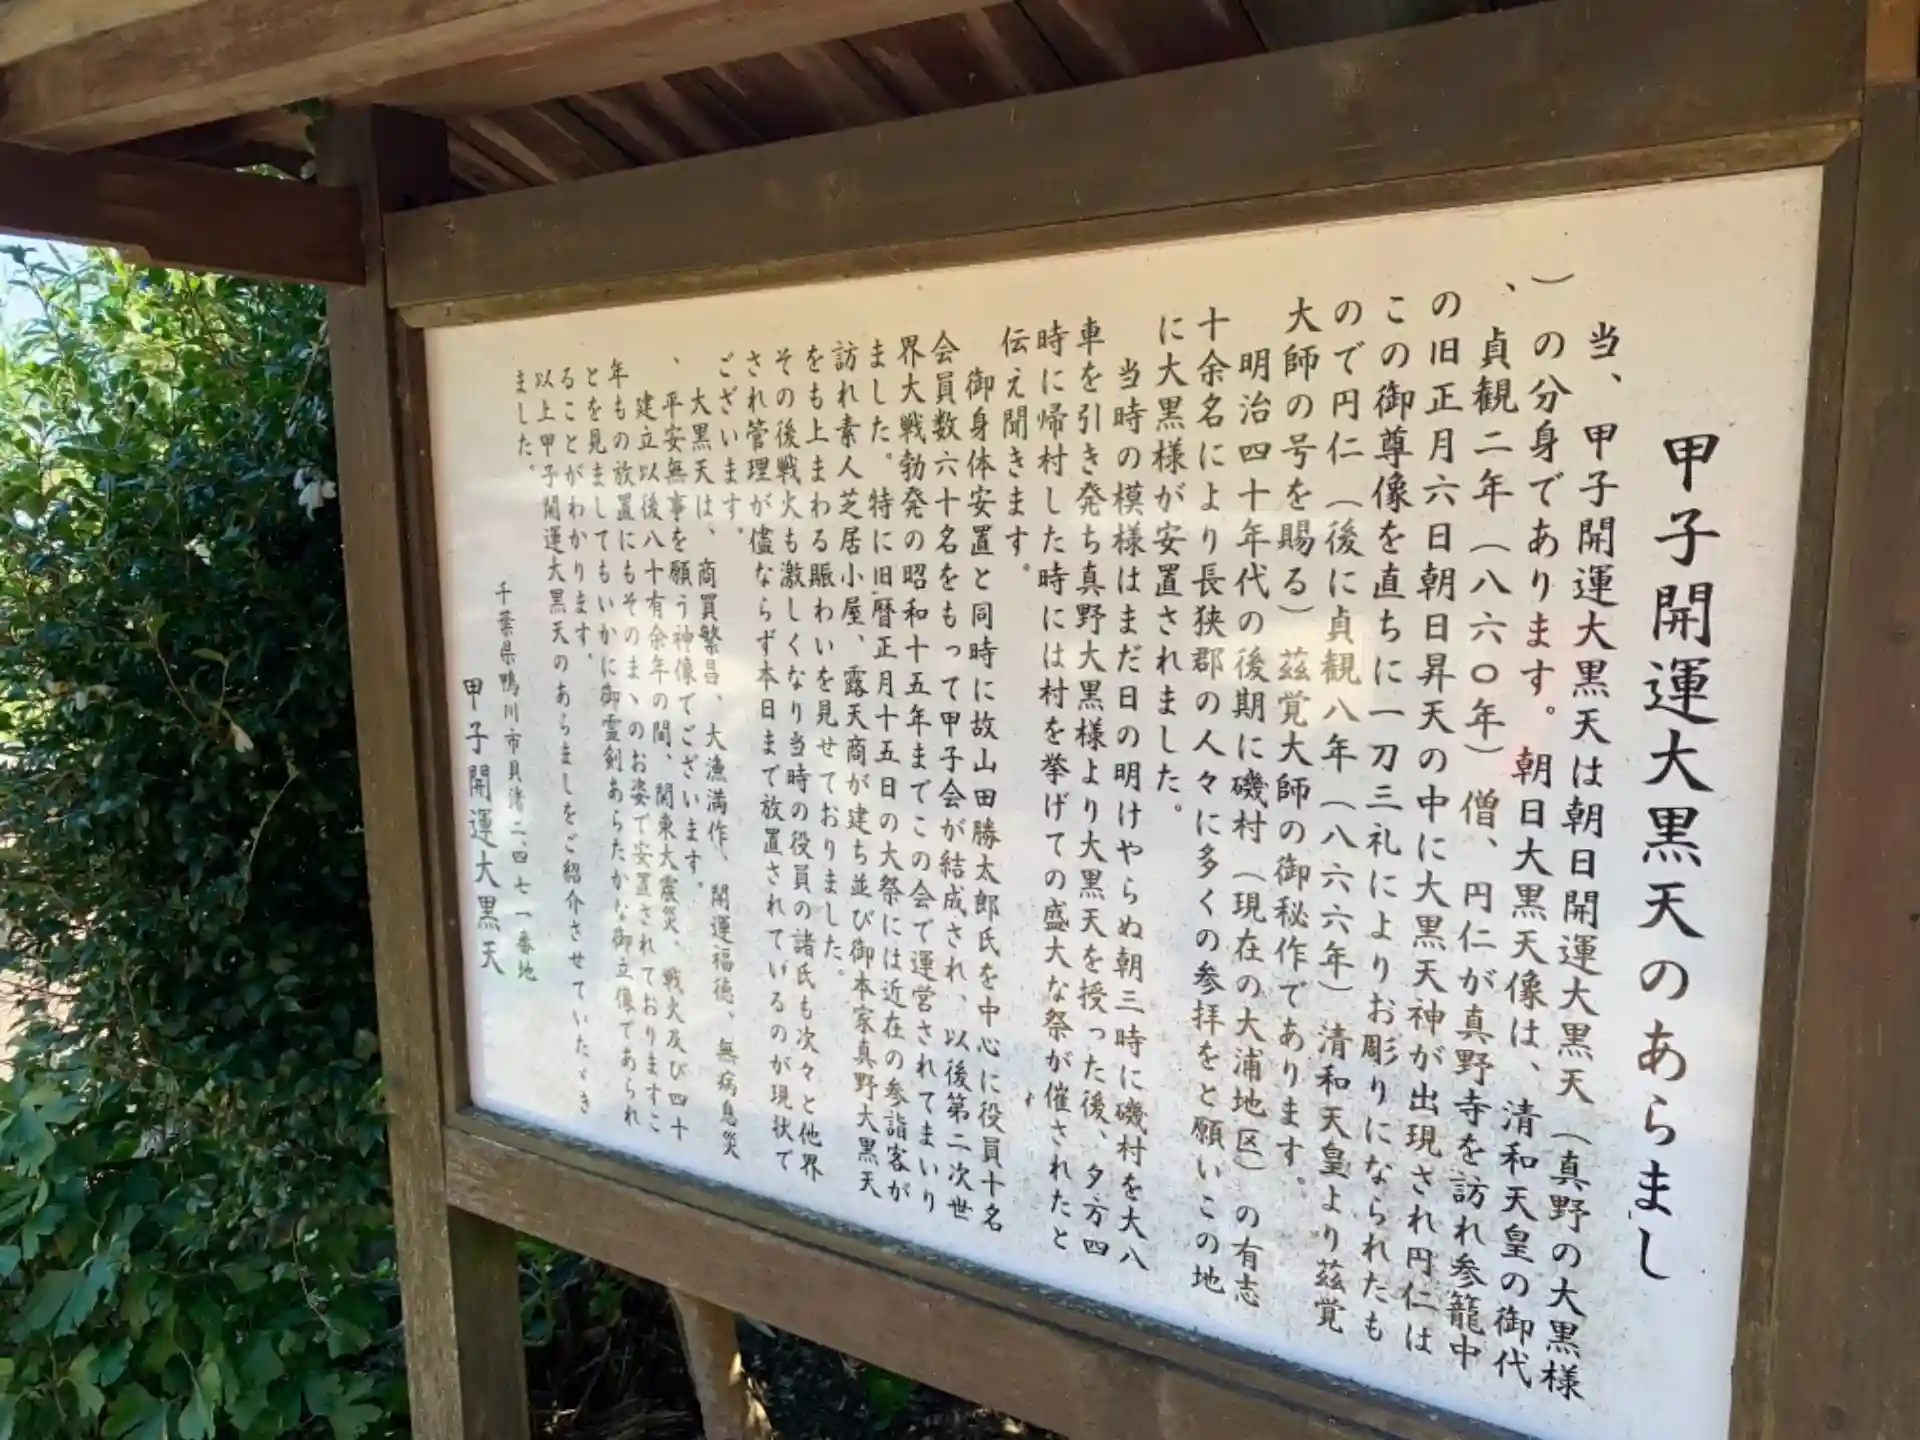 甲子開運大黒天のあらまし
当、甲子開運大黒天は朝日開運大黒天（真野の大黒様
）の分身であります。朝日大黒天像は、清和天皇の御代
、貞観二年（八六〇年）僧、円仁が真野寺を訪れ参籠中
の旧正月六日朝日昇天の中に大黒天神が出現され円仁は
この御尊像を直ちに一刀三礼によりお彫りになられたも
ので円仁（後に貞観八年（八六六年）清和天皇より茲覚
大師の号を賜る）茲覚大師の御秘作であります。
明治四十年代の後期に磯村（現在の大浦地区）の有志
十余名により長狭郡の人々に多くの参拝をと願いこの地
に大黒様が安置されました。
当時の模様はまだ日の明けやらぬ朝三時に磯村を大八
車を引き発ち真野大黒様より大黒天を授った後、夕方四
時に帰村した時には村を挙げての盛大な祭が催されたと
伝え聞きます。
御身体安置と同時に故山田勝太郎氏を中心に役員十名
会員数六十名をもって甲子会が結成され、以後第二次世
界大戦勃発の昭和十五年までこの会で運営されてまいり
ました。特に旧暦正月十五日の大祭には近在の参詣客が
訪れ素人芝居小屋、露天商が建ち並び御本家真野大黒天
をも上まわる賑わいを見せておりました。
その後戦火も激しくなり当時の役員の諸氏も次々と他界
され管理が儘ならず本日まで放置されているのが現状で
ございます。
大黒天は、商買繁昌、大漁満作、開運福徳、無病息災
、平安無事を願う神像でございます。
建立以後八十有余年の間、関東大震災、戦火及び四十
年もの放置にもそのまゝのお姿で安置されておりますこ
とを見ましてもいかに御霊剣あらたかな御立像であられ
ることがわかります。
以上甲子開運大黒天のあらましをご紹介させていたゞき
ました。
千葉県鴨川市貝渚二、四七一番地
甲子開運大黒天